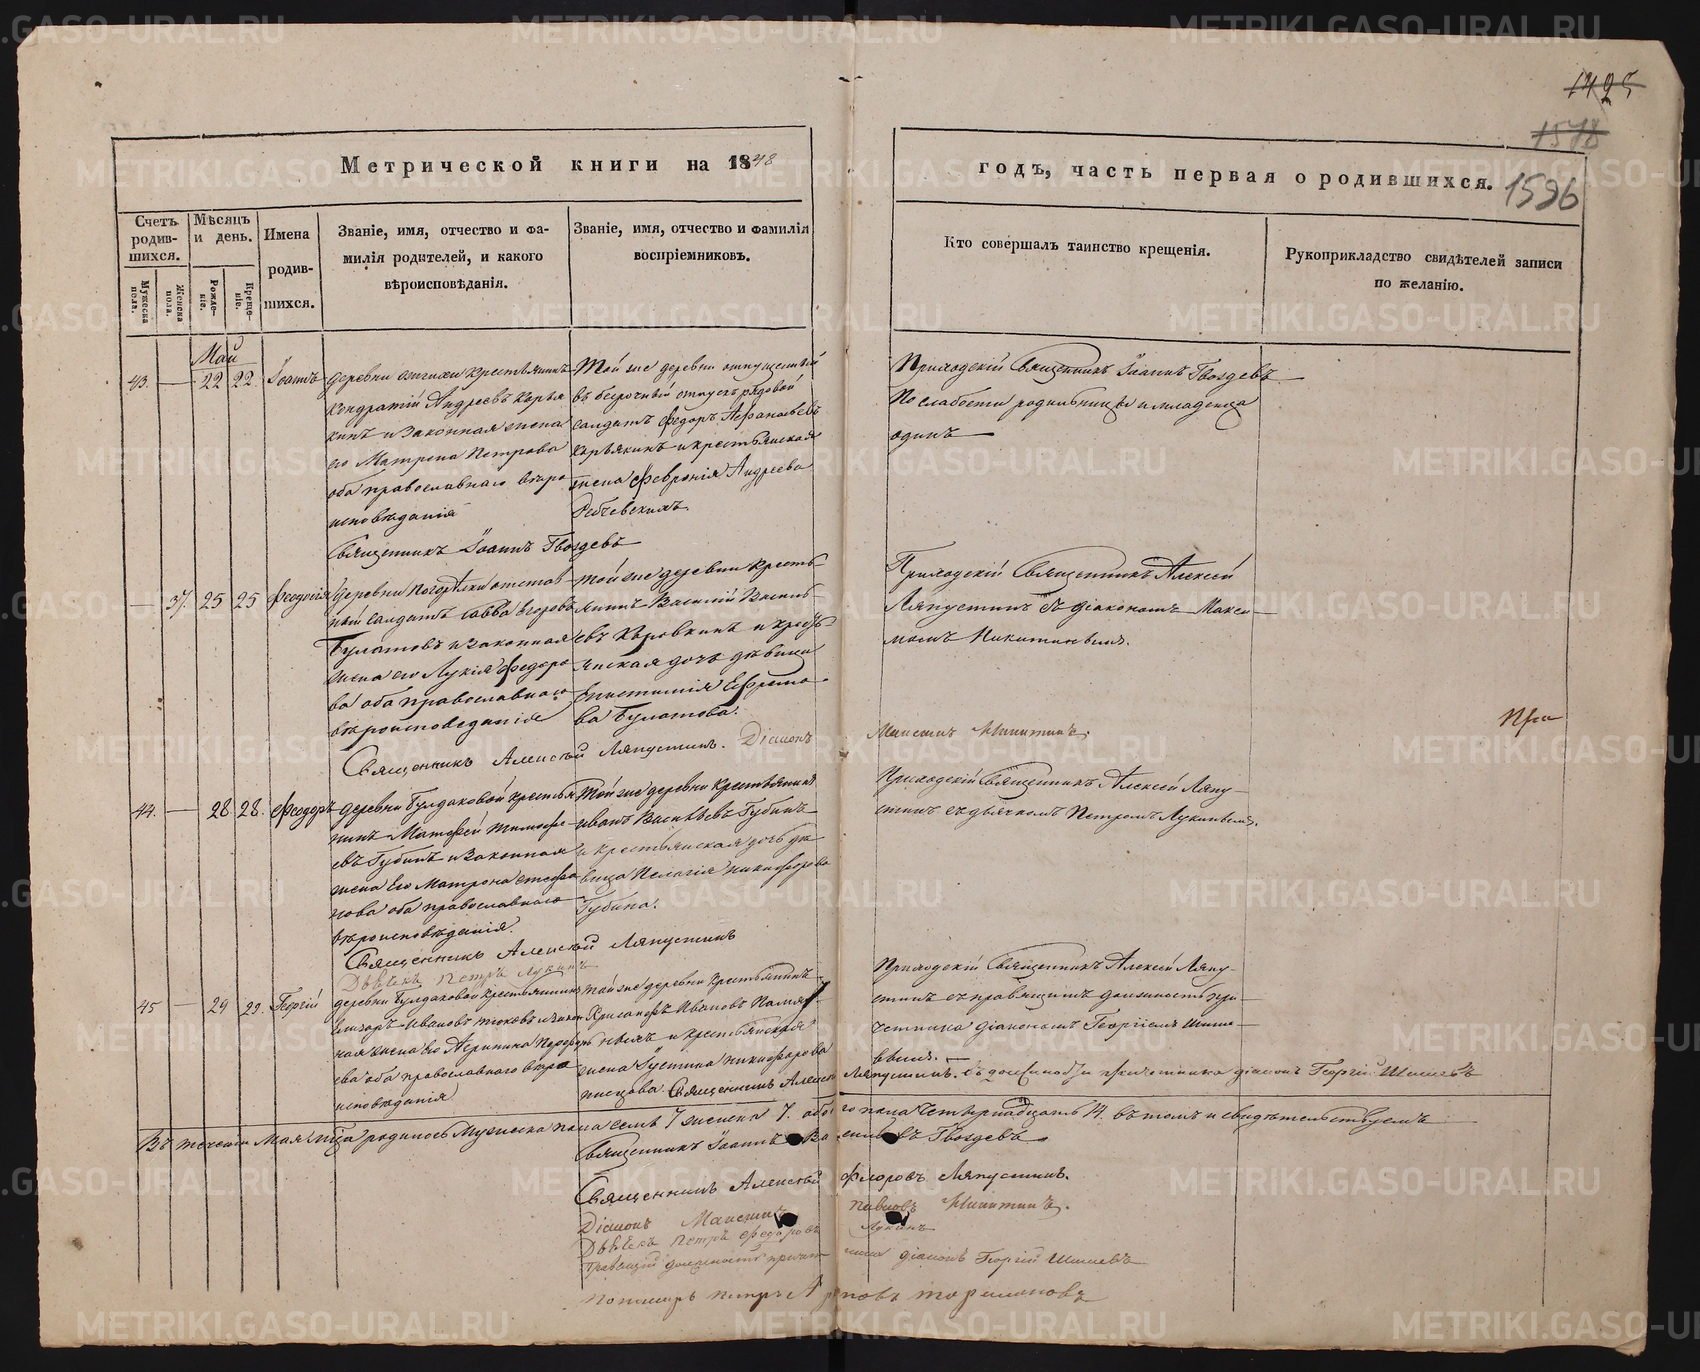 1425
1578
1596
Метрической книги на 1848
годъ, часть первая о родившихся.
Счетъ родив-шихся.
Мужеска пола.
Женска пола.
Мѣсяцъ и день.
Рожде-ніе.
Креще-ніе.
Имена родив-шихся.
Званіе, имя, отчество и фа-
милія родителей, и какого
вѣроисповѣданія.
Званіе, имя, отчество и фамилія
воспріемниковъ.
Кто совершалъ таинство крещенія.
Рукоприкладство свидѣтелей записи
по желанію.
Май
43. — 22 22 Іоаннъ
деревни крестьянинъ
Кондратій Андреевъ Карья
кинъ и законная жена
его Матрена Петрова
оба православнаго вѣро
исповѣданія
Той же деревни отпущенный
въ безрочный отпускъ рядовой
солдатъ Федоръ Афанасьевъ
Карьякинъ и крестьянская
жена Февронія Андреева
Приходскій Священникъ Іоаннъ Гвоздевъ
По слабости родильницы и младенца
одинъ
Священникъ Іоаннъ Гвоздевъ
— 37. 25 25 Феодосія
деревни отстав
ный солдатъ Савва Егоровъ
Булатовъ и законная
жена его Лукія Федоро
ва оба православнаго
вѣроисповеданія
той же деревни кресть-
янинъ Василій Василь-
евъ Коровкинъ и кресть-
янская дочь дѣвица
Епистимія Ефремо-
ва Булатова.
Приходскій Священникъ Алексей
Ляпустинъ съ діакономъ Макси-
момъ Никитинымъ.
Священникъ Алексѣй Ляпустинъ. Діаконъ Максимъ Никитинъ.
44. — 28 28. Феодоръ
деревни Булдаковой крестья
нинъ Матфей Тимофе-
евъ Губинъ и законная
жена его Матрона Стефа
нова оба православнаго
вѣроисповѣданія.
Той же деревни крестьянинъ
Иванъ Васильевъ Губинъ
и крестьянская дочь дѣ
вица Пелагія Никифорова
Губина.
Приходскій Священникъ Алексей Ляпу-
стинъ съ дьячкомъ Петромъ Лукинымъ.
Священникъ Алексѣй Ляпустинъ
Дьячекъ Петръ Лукинъ
45 — 29 29. Георгій
деревни Булдаковой крестьянинъ
Той же деревни крестьянинъ
жена Іустина Никифорова
оба православнаго вѣро
исповѣданія
Приходскій Священникъ Алексей Ляпу-
стинъ съ правящимъ должность при-
четника діакономъ Георгіемъ Шиши-
вымъ.
Священникъ Алексѣй Ляпустинъ. діаконъ Георгій Шишевъ
Въ теченіи Мая м͠ца родилось Мужеска пола семь 7 женска 7. обоего пола четырнадцать 14. въ томъ и свидѣтельствуемъ
Священникъ Іоаннъ Васильевъ Гвоздевъ
Священникъ Алексѣй Флоровъ Ляпустинъ.
Діаконъ Максимъ Павловъ Никитинъ.
Дьячекъ Петръ Федоровъ Лукинъ
Правящій должность причетника діаконъ Георгій Шишевъ
Пономарь Петръ
METRIKI.GASO-URAL.RU